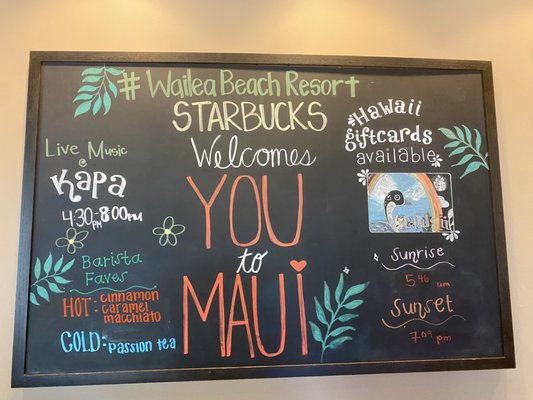 #Wailea Beach Resort
STARBUCKS
Welcomes
YOU
to
MAUI
Live Music
@
Kapa
4:30-8:00PM
PM
Barista
Faves
HOT: cinnamon
caramel
macchiato
COLD: Passion tea
Hawaii
giftcards
available
Sunrise
5:46 am
Sunset
7:09 pm